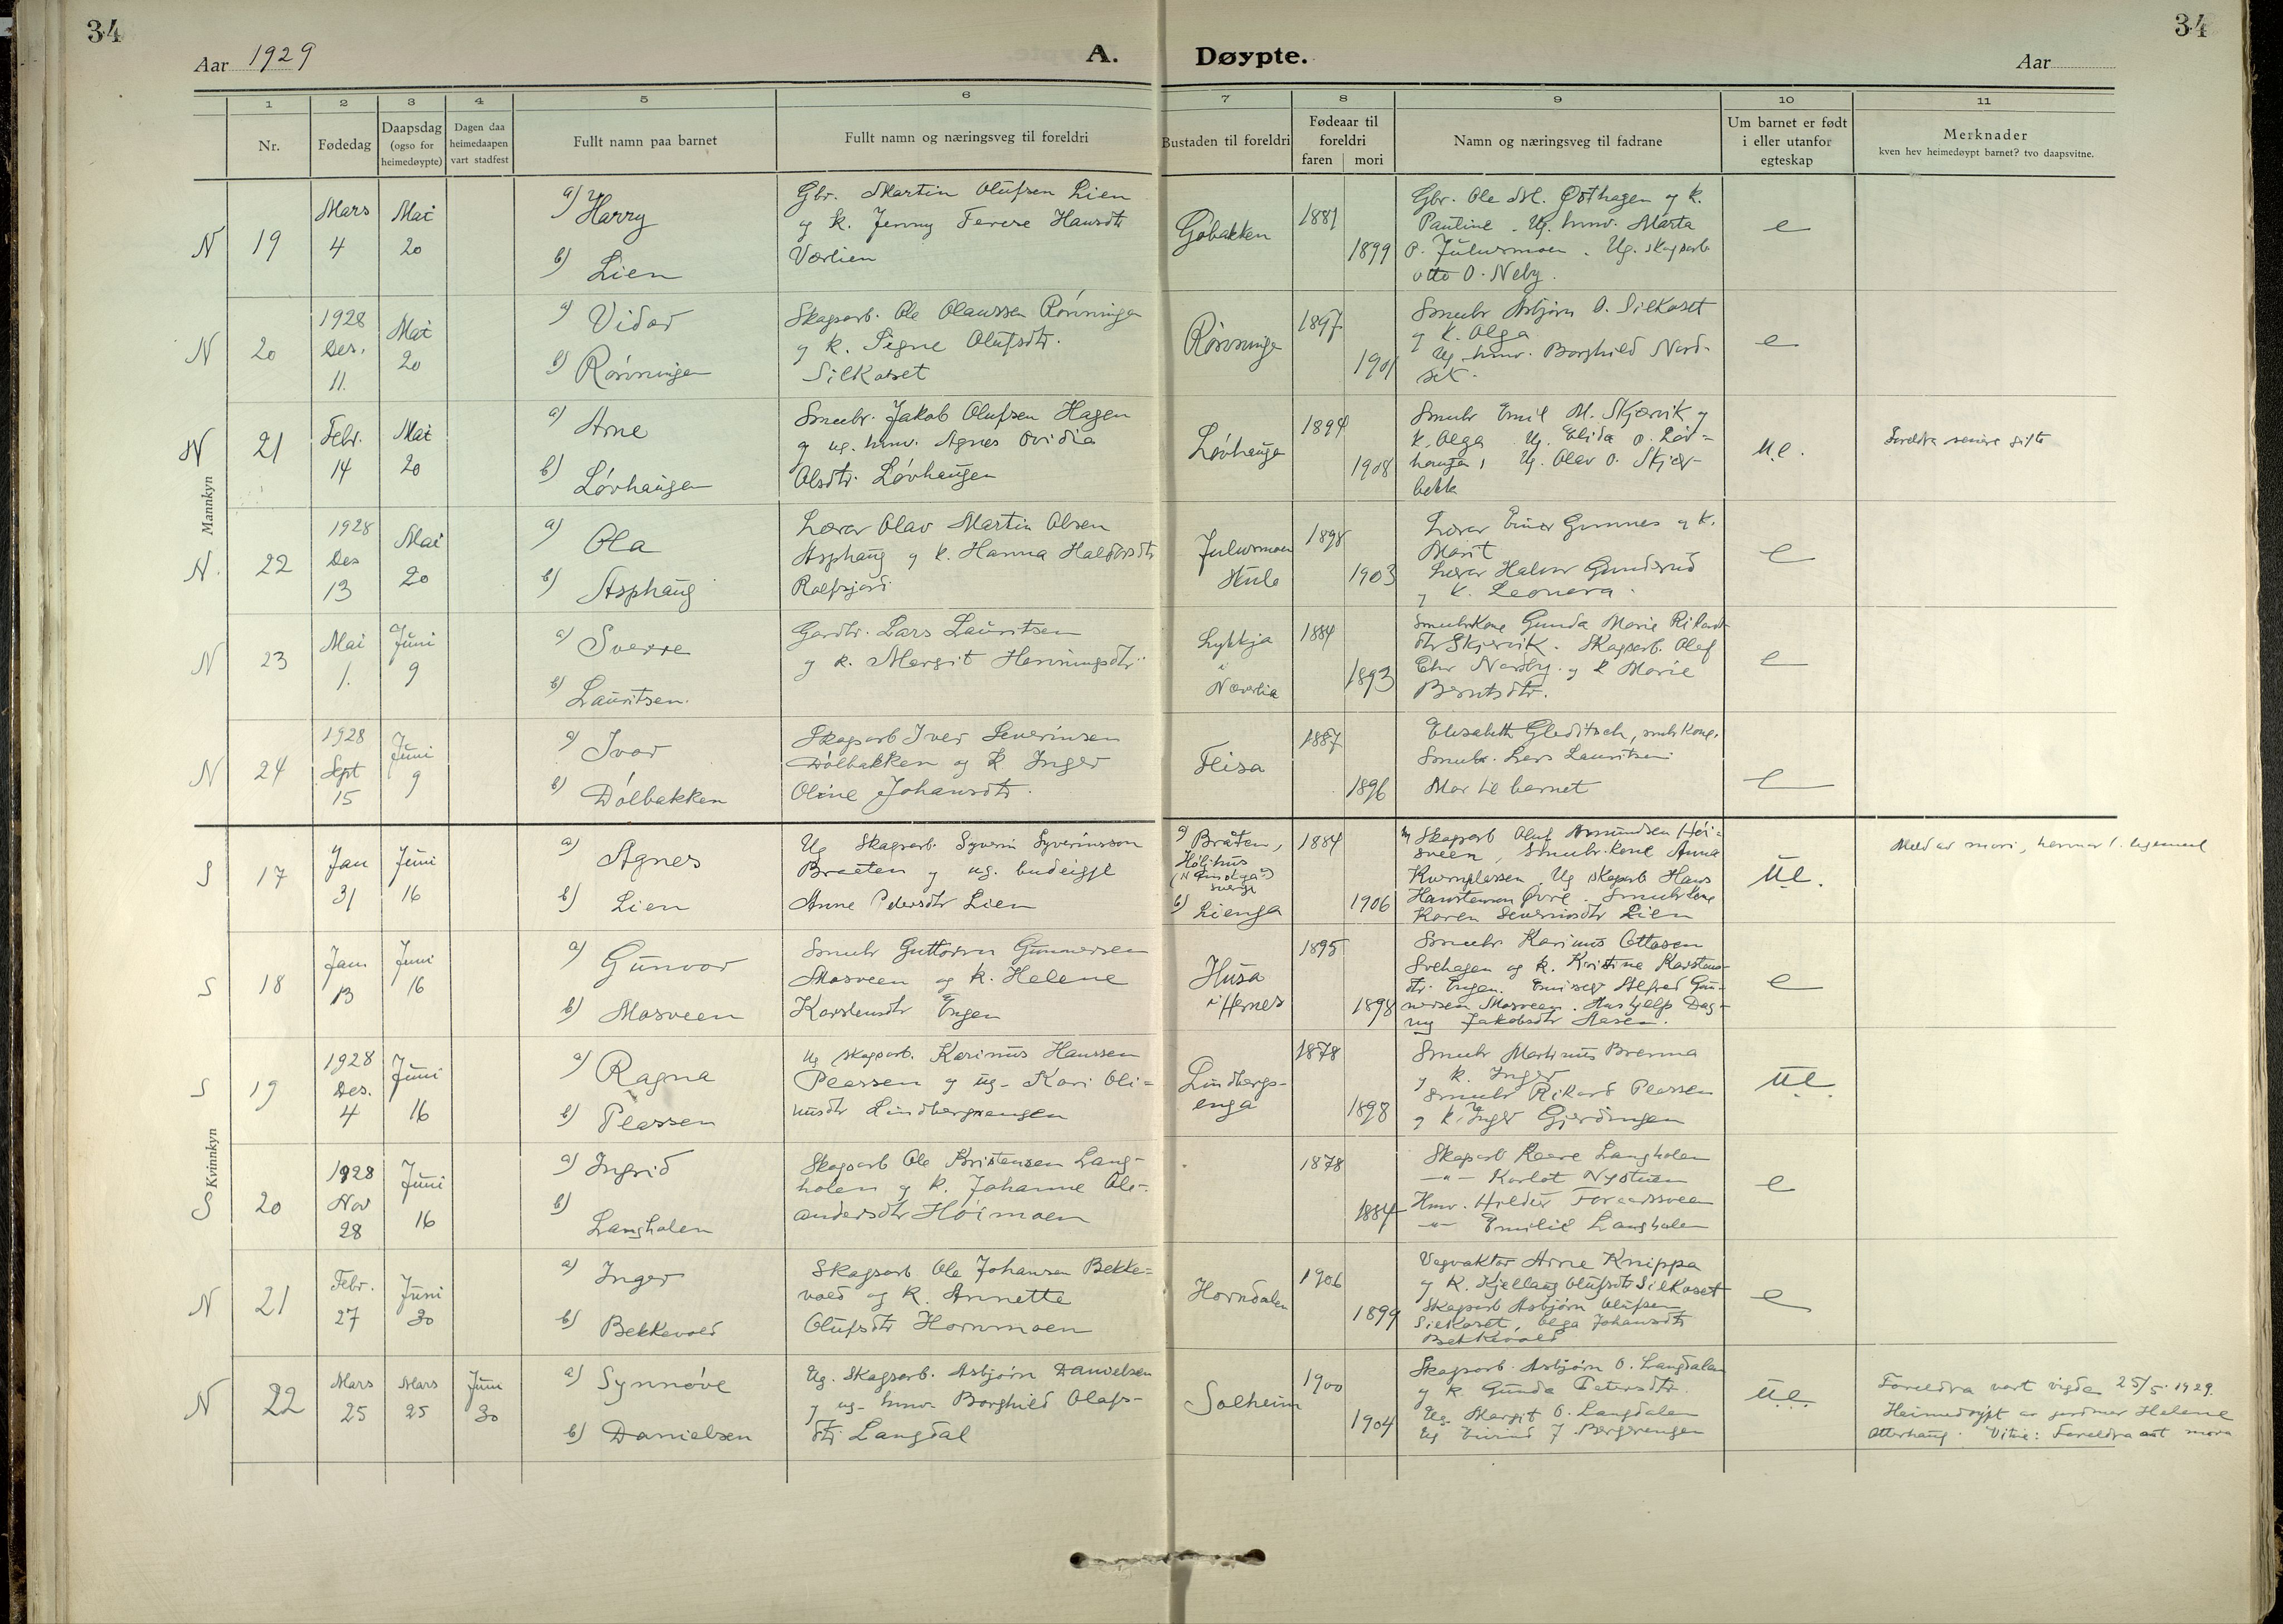 34
34
Aar 1929
A. Døypte.
Aar
1 2 3 4 5 6 7 8 9 10 11
Nr.
Fødedag
Daapsdag
(ogso for
heimedøypte)
Dagen daa
heimedaapen
vart stadfest
Fullt namn paa barnet
Fullt namn og næringsveg til foreldri
Bustaden til foreldri
Fødeaar til
foreldri
faren mori
Namn og næringsveg til fadrane
Um barnet er født
i eller utanfor
egteskap
Merknader
kven hev heimedøypt barnet? tvo daapsvitne.
Mannkyn
N 19
Mars
4
Mai
20
a) Harry
b) Lien
Gbr. Martin Olufsen Lien
og k. Jenny Terese Hansdtr
Værlien
Gobakken
1881
1899
Gbr. Ole M. Østhagen og k.
Pauline. Ug. hmv. Marta
O. Julusmoen. Ug. skogsarb
Otto O. Neby.
e
N 20
1928
Des.
11.
Mai
20
a) Vidar
b) Rønningen
Skogsarb. Ole Olaussen Rønningen
og k. Signe Olufsdtr.
Silkoset
Rønningen
1897
1901
Smubr Asbjørn O. Silkoset
og k. Olga
Ug. hmv. Borghild Nord-
set.
e
N 21
Febr.
14
Mai
20
a) Arne
b) Løvhaugen
Smubr. Jakob Olufsen Hagen
og ug. hmv. Agnes Ovidia
Olsdtr. Løvhaugen
Løvhaugen
1894
1908
Smubr Emil M. Skjærvik og
k. Olga. Ug. Elida O. Løv-
haugen, Ug. Olav O. Skjær-
bekk
u.e.
Foreldra seinere gifte
N. 22
1928
Des
13
Mai
20
a) Ola
b) Asphaug
Lærar Olav Martin Olsen
Asphaug og k. Hanna Haldorsdtr
Rolfsjord
Julusmoen
Skule
1898
1903
Lærar Einar Gunnes og k.
Marit
Lærar Halvor Gunderud
og k. Leonora.
e
N 23
Mai
1.
Juni
9
a) Sverre
b) Lauritsen.
Gardbr. Lars Lauritsen
og k. Margit Henningsdtr.
Lykkja
i
Noverlia
1884
1893
Smubrkone Gunda Marie Rikards-
dtr Skjervik. Skogsarb. Olaf
Chr Nordby. og k Marie
Berntsdtr.
e
N 24
1928
Sept
15
Juni
9
a) Ivar
b) Dølbakken
Skogsarb Iver Severinsen
Dølbakken og k Inger
Oline Johansdtr.
Fleisa
1887
1896
Elisabeth Gleditsch, smbr kone.
Smubr. Lars Lauritsen
Mor til barnet
e
Kvinnkyn
S 17
Jan
31
Juni
16
a) Agnes
b) Lien
Ug Skogsarb. Syverin Syverinsson
Braaten og ug. budeigje
Anne Pedersdtr Lien
a) Bråten,
Höljhus
Sverge
b) Lienga
1884
1906
Skogsarb Oluf Amundsen Høi-
sveen, Smubr.kone Anna
Kvernplassen. Ug skogsarb Hans
Hanstensen Øvre. Smubrkone
Karen Severinsdtr Lien
u.e.
Meld av mori,
S 18
Jan
13
Juni
16
a) Gunvor
b) Mosveen
Smubr Guttorm Gunnersen
Mosveen og k. Helene
Karstensdtr Engen
Husa
i Hernes
1895
1898
Smubr Karinus Ottosen
Svehagen og k. Kristine Karstens-
dtr. Engen. Emissær Alfred Gun-
nersen Mosveen. Hushjelp Dag-
ny Jakobsdtr Aasen.
e
S 19
1928
Des.
4
Juni
16
a) Ragna
b) Plassen
Ug skogsarb. Karinus Hanssen
Plassen og ug. Kari Oli-
nusdtr Lindbergsengen
Lindbergs-
enga
1878
1898
Smubr Martinus Brenna
og k. Inger
Smubr Rikard Plassen
og k. Inger Gjerdingen
u.e.
S 20
1928
Nov
28
Juni
16
a) Ingrid
b)
Langholen
Skogsarb Ole Kristensen Lang-
holen og k. Johanne Ole-
andersdtr Høimoen
1878
1884
Skogsarb Kaare Langholen
—"— Karlot Nystuen
Hmv. Hilder Toraasveen
—"— Emilie Langholen
e
N 21
Febr.
27
Juni
30
a) Inger
b) Bekkevold
Skogsarb Ole Johansen Bekke-
vold og k. Annette
Olufsdtr Hornmoen
Horndalen
1906
1899
Vegvaktar Arne Knippa
og k. Kjellaug Olufsdtr Silkoset
Skogsarb Asbjørn Olufsen
Silkoset, Olga Johansdtr
Bekkevold
e
N 22
Mars
25
Mars
25
Juni
30
a) Synnøve
b) Danielsen
Ug. Skogsarb. Asbjørn Danielsen
og ug. hmv. Borghild Olafs-
dtr Langdal
Solheim
1900
1904
Skogsarb. Asbjørn O. Langdalen
og k. Gunda Petersdtr.
Ug. Margit O. Langdalen
Ug Eivind J. Bergsengen
u.e.
Foreldra vart vigde 25/5 1929.
Heimedøypt av jordmor Helene
Otterhaug. Vitne: Foreldra aat mora